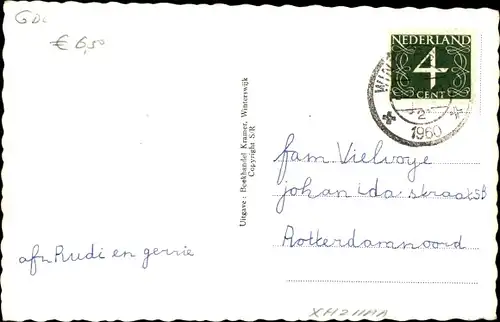 GDc
€ 6,50
NEDERLAND
4
CENT
2
1960
Uitgave: Boekhandel Kramer, Winterswijk
Copyright S/R
fam Vielvoye
johan ida straat 5B
Rotterdamnoord
afz Rudi en gerrie